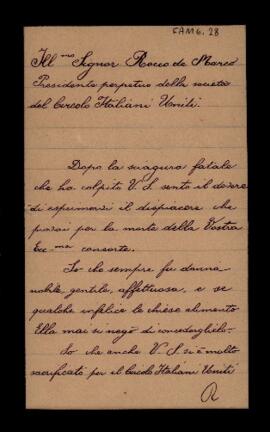 FAM6. 28
Ill.mo Signor Rocco de Marco
Presidente perpetuo della società
del Circolo Italiani Uniti.
Dopo la sciagura fatale
che ha colpito V. S. sento il dovere
di esprimervi il dispiacere che
provai per la morte della Vostra
Ecc.ma consorte.
So che sempre fu donna
nobile, gentile, affettuosa, e se
qualche infelice le chiese alimento
Ella mai si negò di concederglielo.
So che anche V. S. si è molto
sacrificato per il Circolo Italiani Uniti